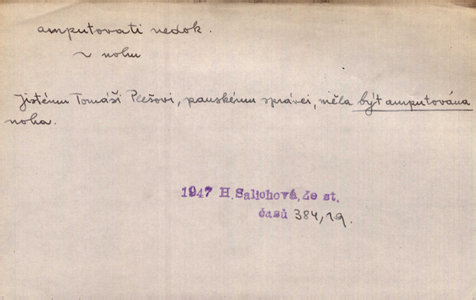 amputovati nedok.
~ nohu
Jistému Tomáši Plešovi, panskému správci, měla být amputována
noha.
1947 H.Salichová, Ze st.
časů 384,19.